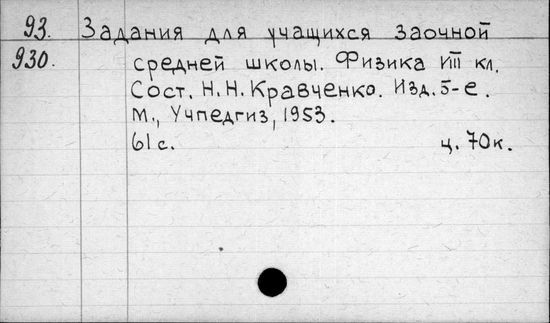 93. Задания для учащихся заочной
930. средней школы. Физика VIII кл.
Сост. Н.Н. Кравченко. Изд. 5-е.
М., Учпедгиз, 1953.
61 с. ц. 70 к.